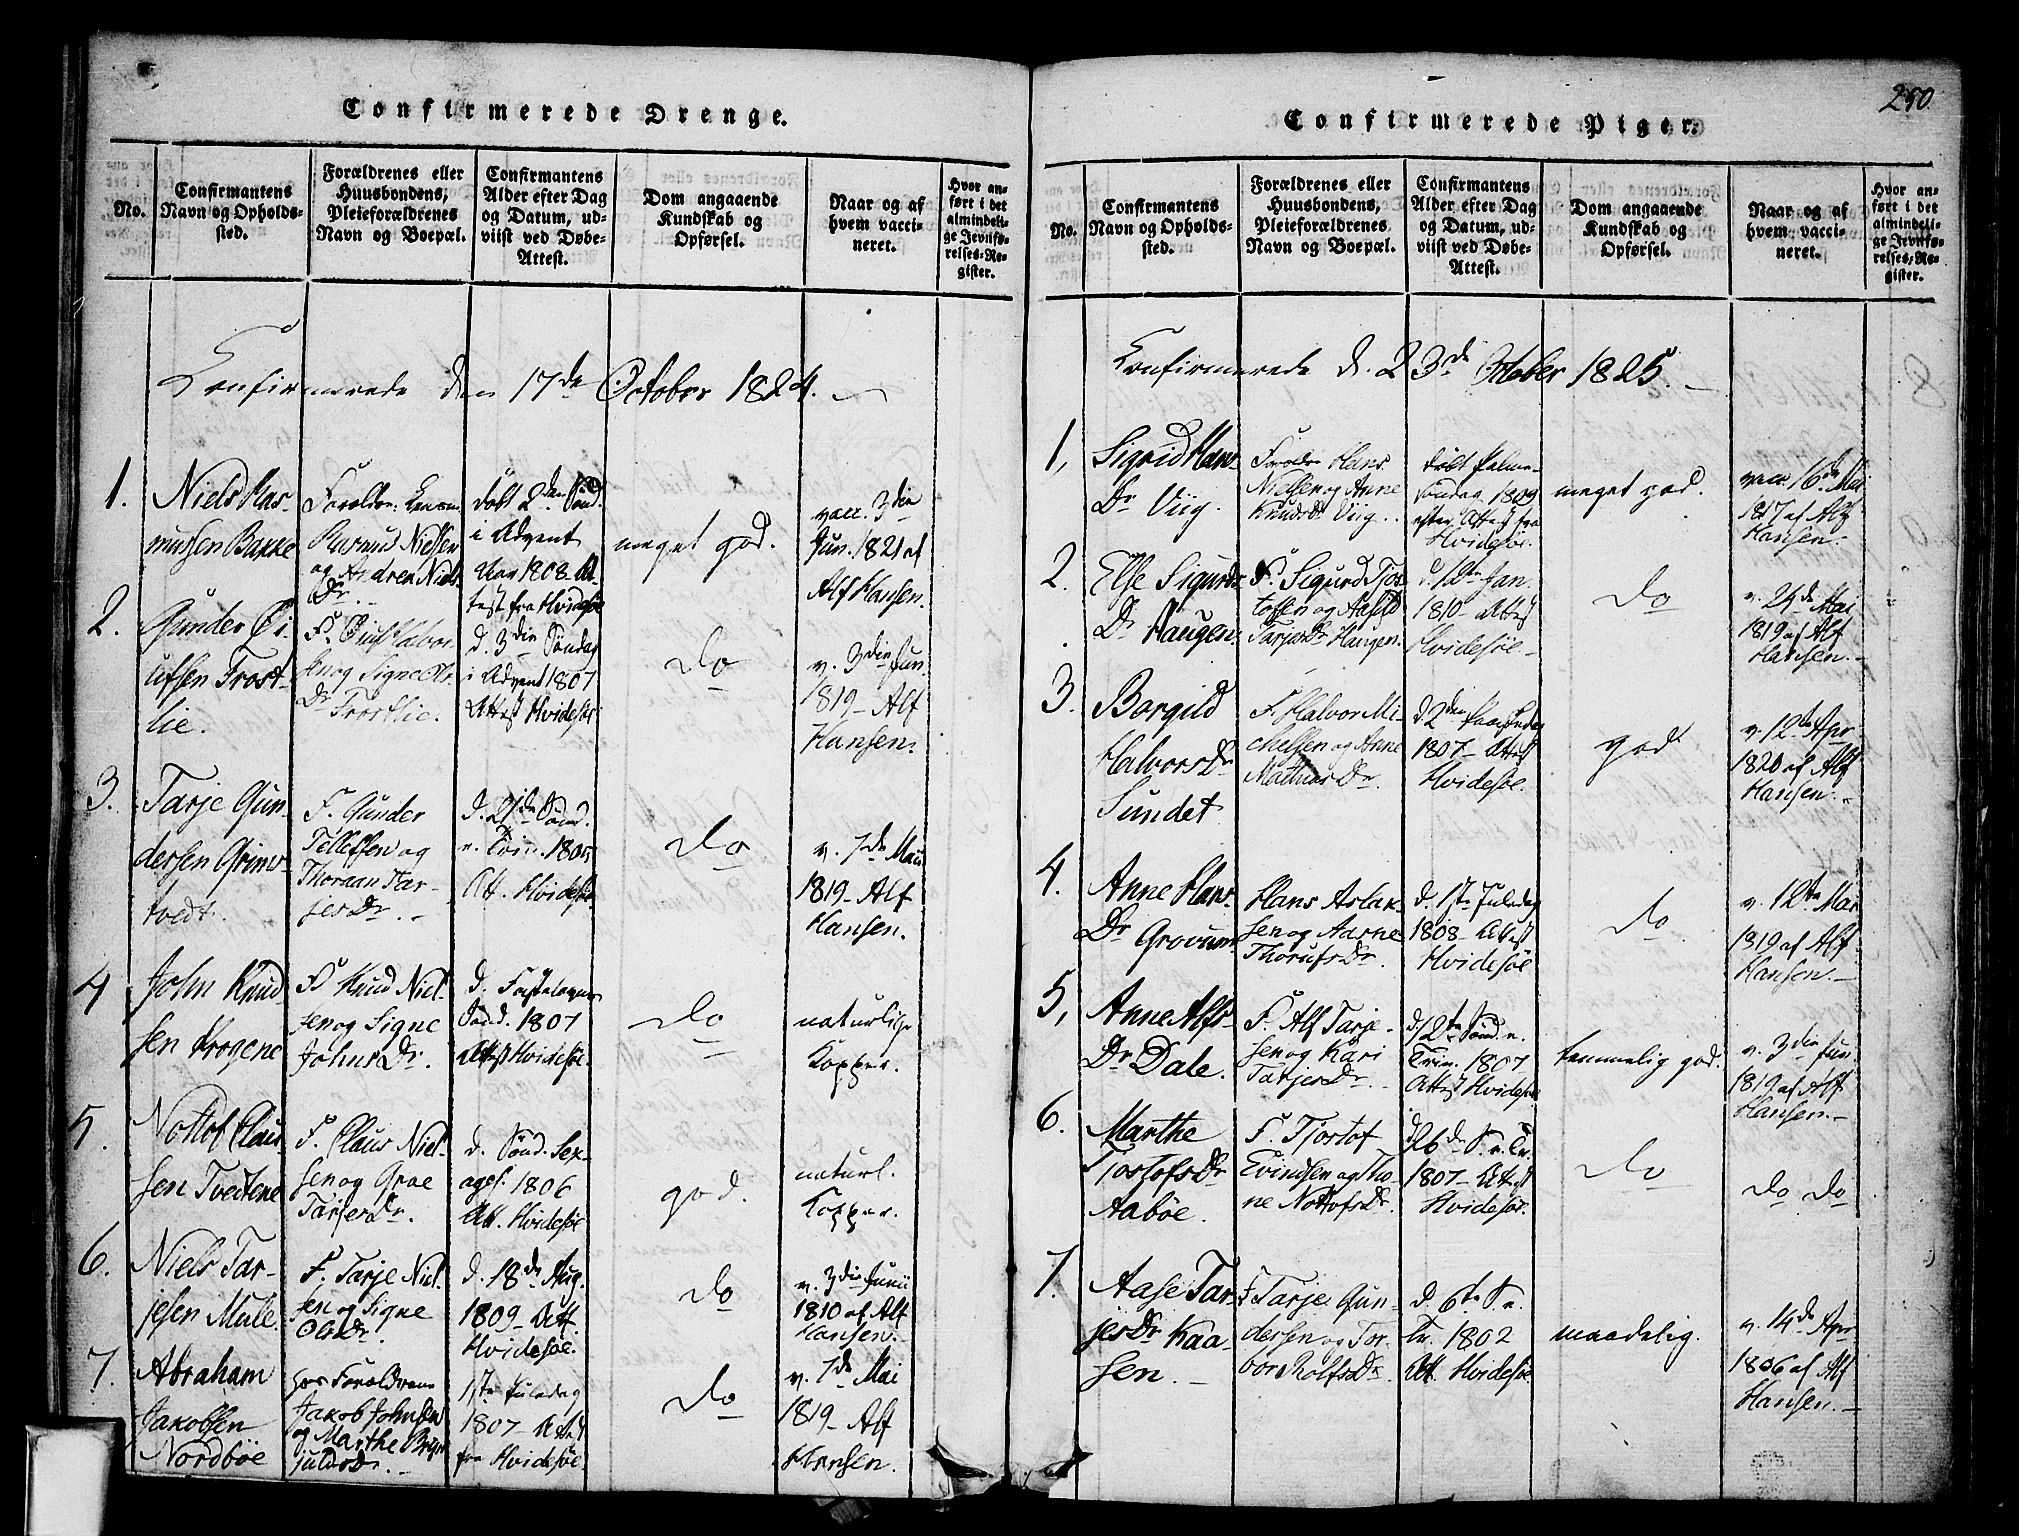 250.
Confirmerede Drenge.
No.
Confirmantens
Navn og Opholds-
sted.
Forældrenes eller
Huusbondens,
Pleieforældrenes
Navn og Boepæl.
Confirmantens
Alder efter Dag
og Datum, ud-
viist ved Døbe-
Attest.
Dom angaaende
Kundskab og
Opførsel.
Naar og af
hvem vacci-
neret.
Hvor an-
ført i det
almindeli-
ge Jevnfø-
relses-Re-
gister.
Confirmerede den 17de October 1824.
1.
Niels Ras-
mussen Bakke
Forældre:
Rasmus Nielsen
og Niels
Dr.
døbt 2den Sønd.
i Advent
1808 - At-
test fra Hvidesøe
meget god.
vacc. 3die
Jun. 1821 af
Alf Hansen.
2.
Gunder
ufsen Frost-
lie.
F.
og Signe
Dr. Frostlie.
d. 3die Søndag
i Advent 1807
Attest Hvidesøe
Do
v. 3die Jun.
1819 - Alf
Hansen.
3.
Tarje Gun-
dersen
tvedt.
F. Gunder
Tellefsen og
Thoraan Tar-
jesDr. -
d. 21de Sønd.
e. Trin. 1805
Att. Hvidesøe
Do
v. 7de Maii
1819 - Alf
Hansen.
4
John Knud-
sen Krogene
F. Knud Niel-
sen og Signe
JohnsDr.
d. Fastelavns
Sønd. 1807
Attest Hvidesøe.
Do
naturlige
Kopper.
5.
Nottof Claus-
sen Tveitene
F. Claus Niel-
sen og Groe
TarjesDr.
d. Sønd. Sex-
ages. 1806
Att. Hvidesøe
god.
naturl.
Kopper.
6.
Niels Tar-
jesen Mule.
F. Tarje Niel-
sen og Signe
OlsDr.
d. 18de Aug.
1809 - Att.
Hvidesøe.
Do
v. 3die Junii
1810 af Alf
Hansen.
7.
Abraham
Jakobsen
Nordbøe
Forældrene
Jakob Johnsen
og Marthe
Dr. -
1ste Juledag
1807 - Attest
fra Hvidesøe.
Do
v. 7de Mai
1819 - Alf
Hansen.
Confirmerede Piger.
No.
Confirmantens
Navn og Opholds-
sted.
Forældrenes eller
Huusbondens,
Pleieforældrenes
Navn og Boepæl.
Confirmantens
Alder efter Dag
og Datum, ud-
viist ved Døbe-
Attest.
Dom angaaende
Kundskab og
Opførsel.
Naar og af
hvem vacci-
neret.
Hvor an-
ført i det
almindeli-
ge Jevnfø-
relses-Re-
gister.
Confirmerede d. 23de October 1825. -
1,
Sigrid Hans-
Dr Viig.
Forældre Hans
Nielsen og Anne
KnudsDr Viig.
døbt Palme-
Søndag 1809
efter Attest fra
Hvidesøe.
meget god.
vacc 16de Mai
1817 af Alf
Hansen.
2.
Else Sigurds-
Dr Haugen.
F. Sigurd Tjos-
tofsen og Aasild
TarjesDr Haugen.
d. 12te Jan.
1810 - Attest
Hvidesøe -
Do
v. 24de Mai
1819 af Alf
Hansen. -
3.
Borgild
HalvorsDr
Sundet
F. Halvor Mi-
chelsen og Anne
Dr.
d 2den Paaskedag
1807 - Attest
Hvidesøe.
god
v. 12te Apr.
1820 af Alf
Hansen. -
4.
Anne Hans-
Dr Grovum
Hans Aslak-
sen og Aarne
ThorufsDr.
d. 1ste Juledag
1808 - Attest
Hvidesøe
Do
v. 12te Mar
1819 af Alf
Hansen. -
5,
Anne Alfs-
Dr Dale.
F. Alf Tarje-
sen og Kari
TarjesDr.
d. 12te Sønd. e.
Trin. 1807
Attest Hvidesøe
temmelig god.
v. 3die Jun.
1819 af Alf
Hansen. -
6.
Marthe
TjostofsDr
Aabøe.
F. Tjostof
Evindsen og Tho-
ne NottofsDr.
d 26de S. e. Tr.
1807 - Attest
Hvidesøe.
Do
Do Do
7.
Aase Tar-
jesDr Kaa-
sen. -
F Tarje Gun-
dersen og Tor-
bor RolfsDr.
d. 6te S. e.
Tr. 1802
Att. Hvidesøe.
maadelig.
v. 14de Apr
1806 af Alf
Hansen. -